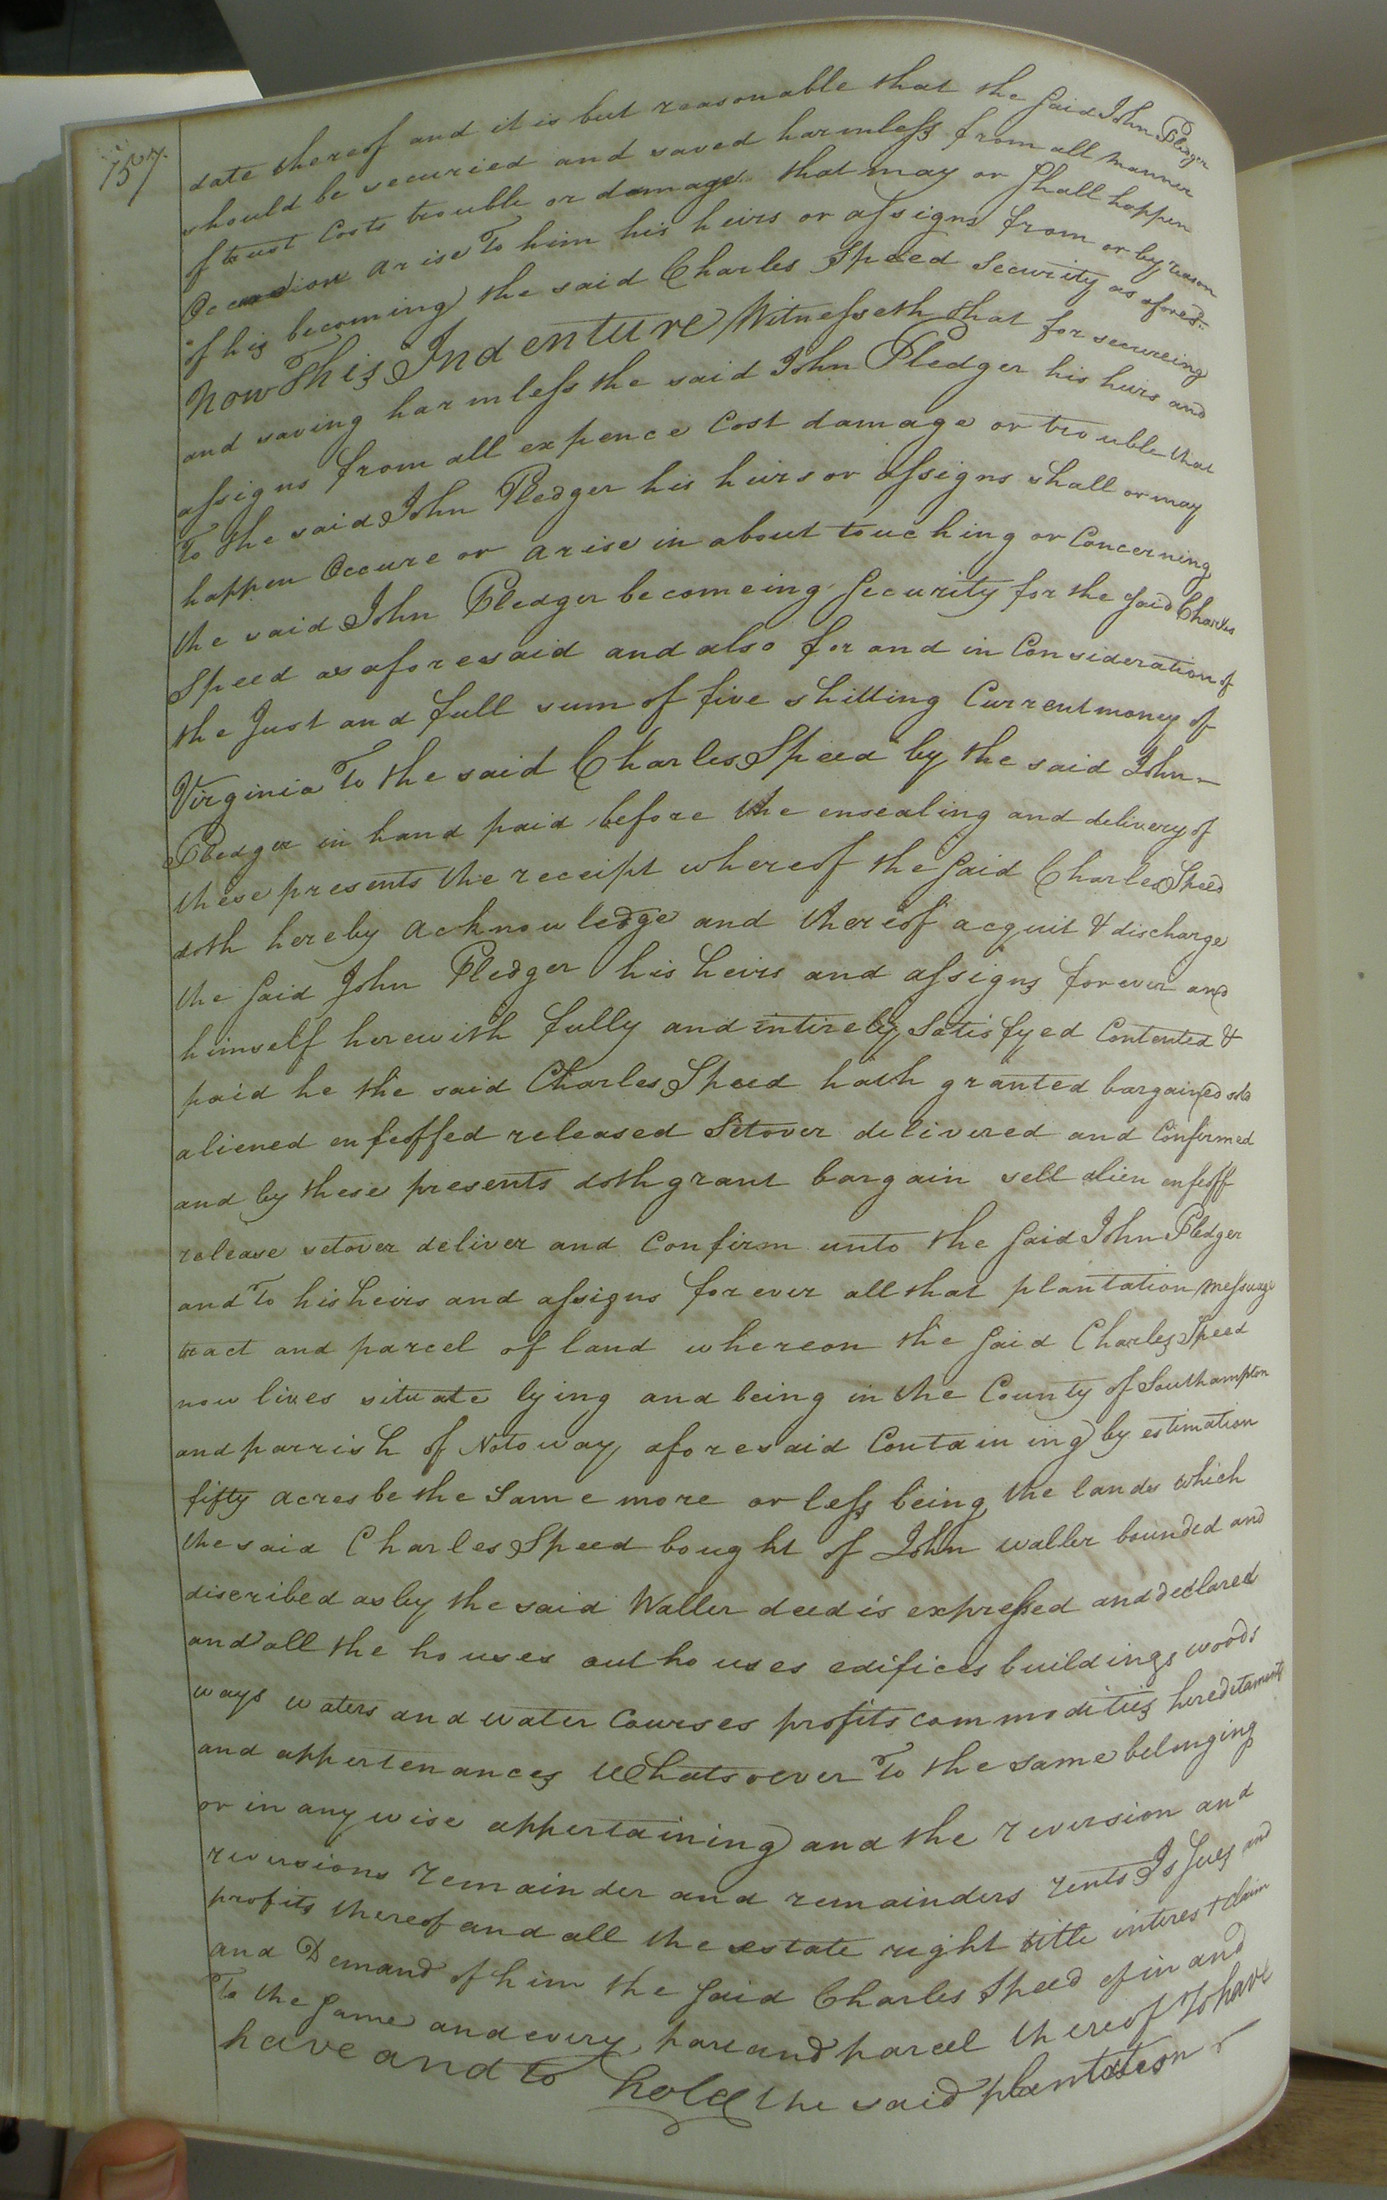 157
date thereof and it is but reasonable that the said John Pledger
should be securied and saved harmless from all manner
of Costs trouble or damage that may or shall happen
Occasion arise To him his heirs or assigns from or by reason
of his becoming the said Charles Speed Security as afores.d
Now This Indenture Witnesseth that for secureing
and saving harmless the said John Pledger his heirs and
assigns from all expence Cost damage or trouble that
To the said John Pledger his heirs or assigns shall or may
happen Occure or arise in about touching or Concerning
the said John Pledger becomeing Security for the said Charles
Speed as aforesaid and also for and in Consideration of
the Just and full sum of five shilling Current money of
Virginia To the said Charles Speed by the said John
Pledger in hand paid before the ensealing and delivery of
these presents the receipt whereof the said Charles Speed
doth hereby acknowledge and thereof acquit & discharge
the said John Pledger his heirs and assigns forever and
himself herewith fully and intirely Satisfyed Contented &
paid he the said Charles Speed hath granted bargained sold
aliened enfeoffed released Setover delivered and Confirmed
and by these presents doth grant bargain sell alien enfeoff
release setover deliver and Confirm unto the said John Pledger
and To his heirs and assigns forever all that plantation Messuage
tract and parcel of land whereon the said Charles Speed
now lives situate lying and being in the County of Southampton
and parrish of Notoway aforesaid Containing by estimation
fifty acres be the Same more or less being the lands which
the said Charles Speed bought of John Waller bounded and
discribed as by the said Waller deed is expressed and declared
and all the houses out houses edifices buildings woods
ways waters and water Courses profits commodities hereditaments
and appertenances Whatsoever To the same belonging
or in any wise appertaining and the reversion and
reversions remainder and remainders rents Issues and
profits thereof and all the estate right title interest claim
and Demand of him the said Charles Speed of in and
To the same and every part and parcel thereof To have
have and to hold the said plantation